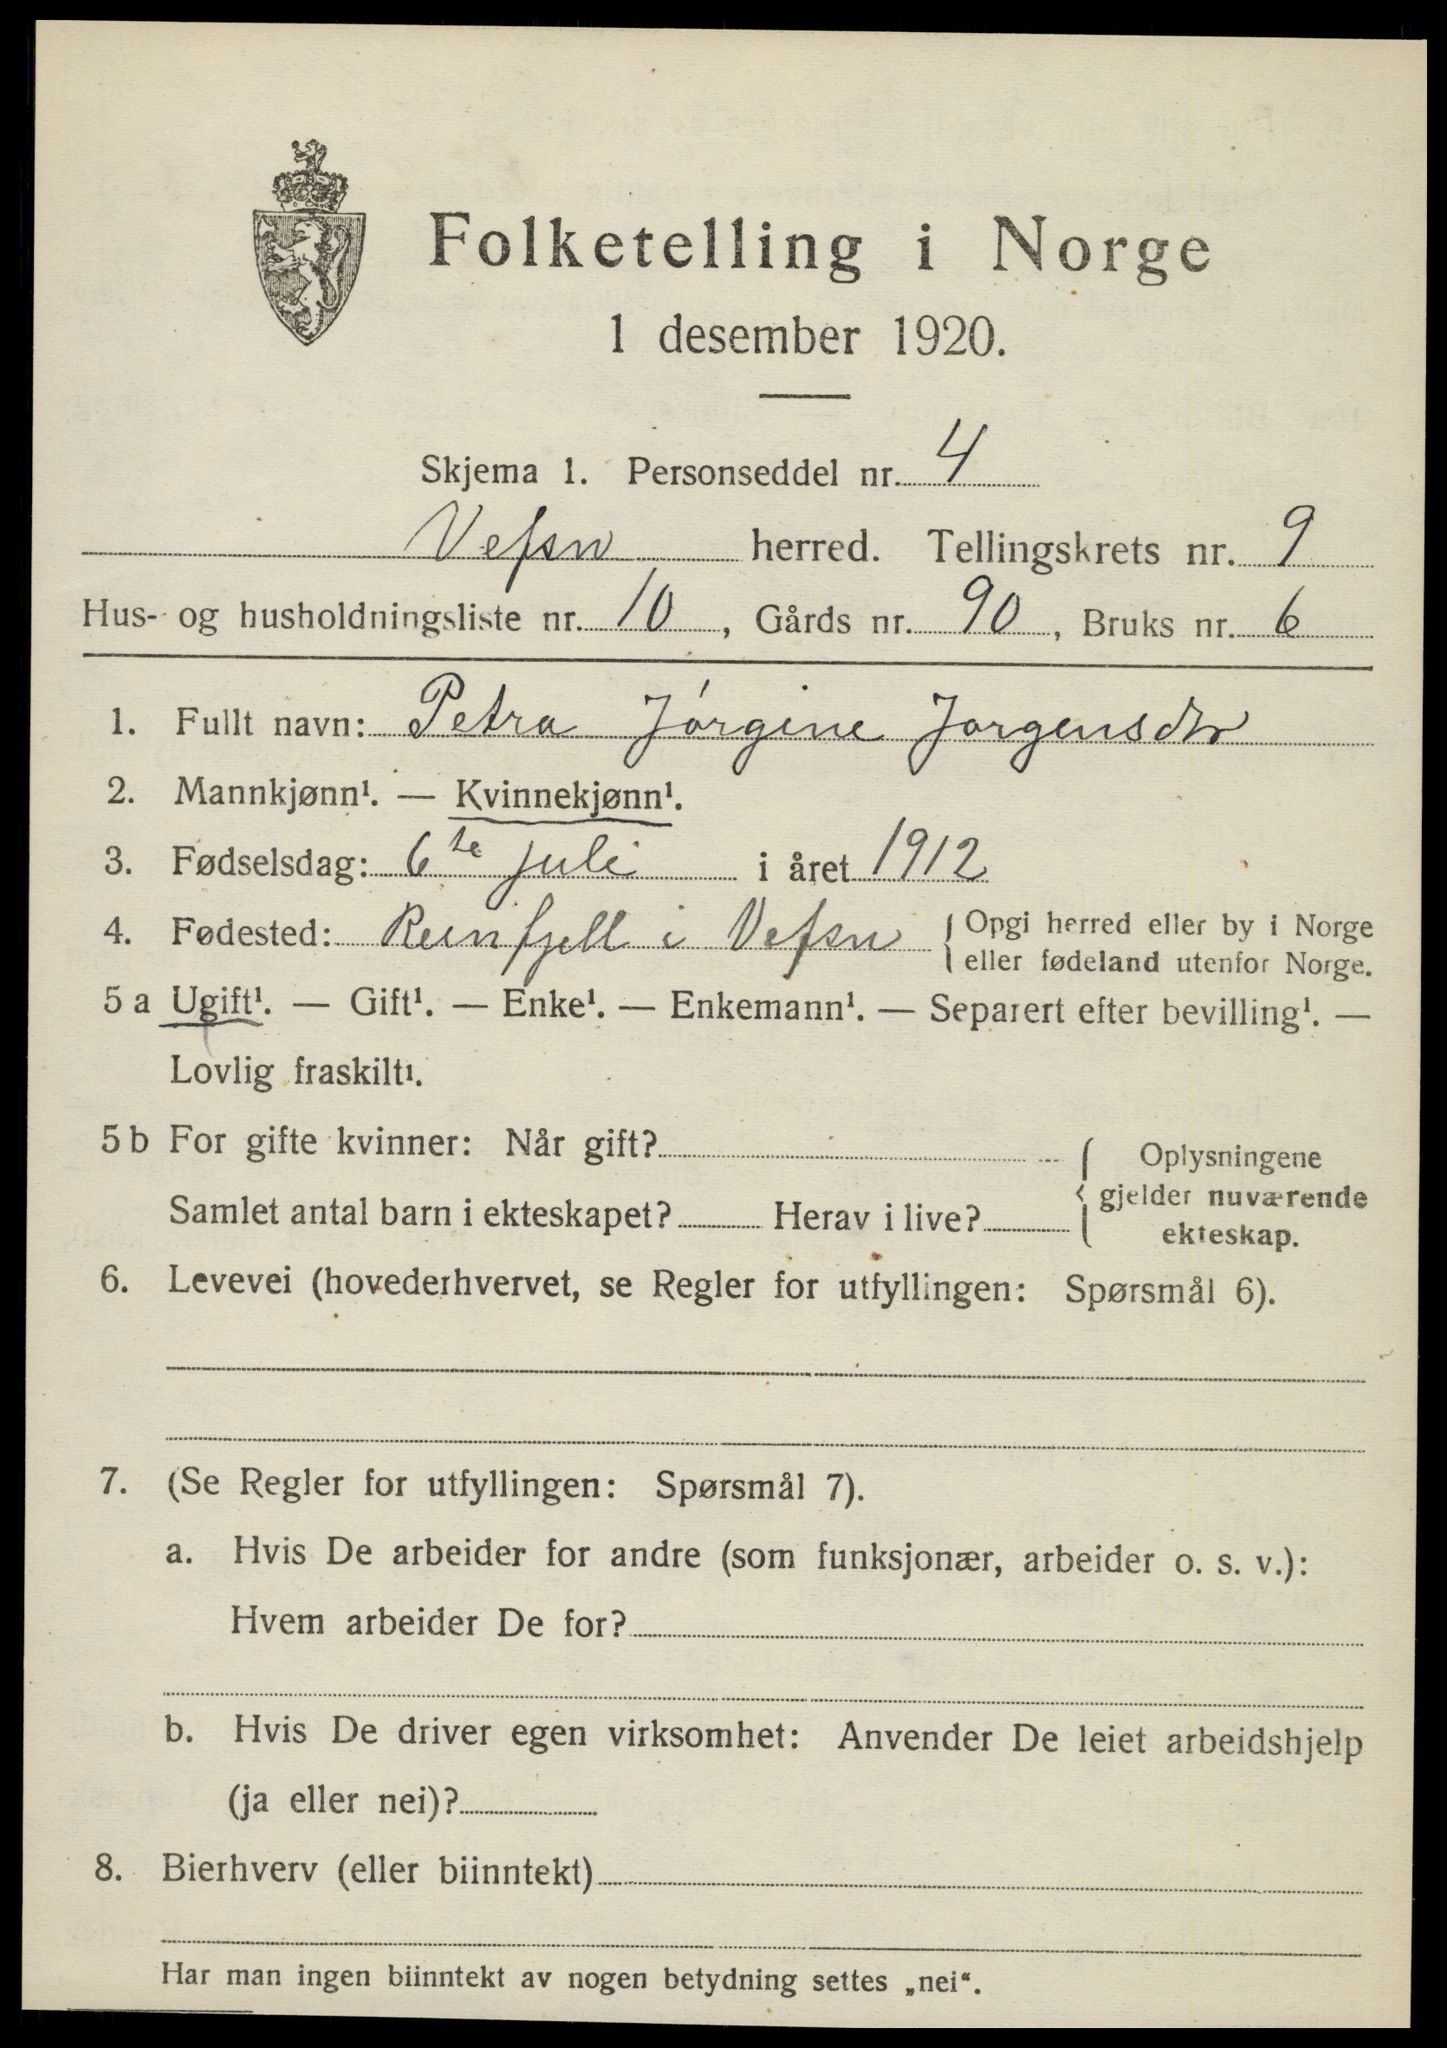 Folketelling i Norge
1 desember 1920.
Skjema 1. Personseddel nr. 4
Vefsn herred. Tellingskrets nr. 9
Hus- og husholdningsliste nr. 10, Gårds nr. 90, Bruks nr. 6
1. Fullt navn: Petra Jórgine Jorgensdtr
2. Mannkjønn¹. — Kvinnekjønn¹.
3. Fødselsdag: 6te juli i året 1912
4. Fødested: Reinfjell i Vefsn { Opgi herred eller by i Norge
eller fødeland utenfor Norge.
5 a Ugift¹. — Gift¹. — Enke¹. — Enkemann¹. — Separert efter bevilling¹. —
Lovlig fraskilt¹.
5 b For gifte kvinner: Når gift? { Oplysningene
gjelder nuværende
Samlet antal barn i ekteskapet? Herav i live?
ekteskap.
6. Levevei (hovederhvervet, se Regler for utfyllingen: Spørsmål 6).
7. (Se Regler for utfyllingen: Spørsmål 7).
a. Hvis De arbeider for andre (som funksjonær, arbeider o. s. v.):
Hvem arbeider De for?
b. Hvis De driver egen virksomhet: Anvender De leiet arbeidshjelp
(ja eller nei)?
8. Bierhverv (eller biinntekt)
Har man ingen biinntekt av nogen betydning settes „nei“.